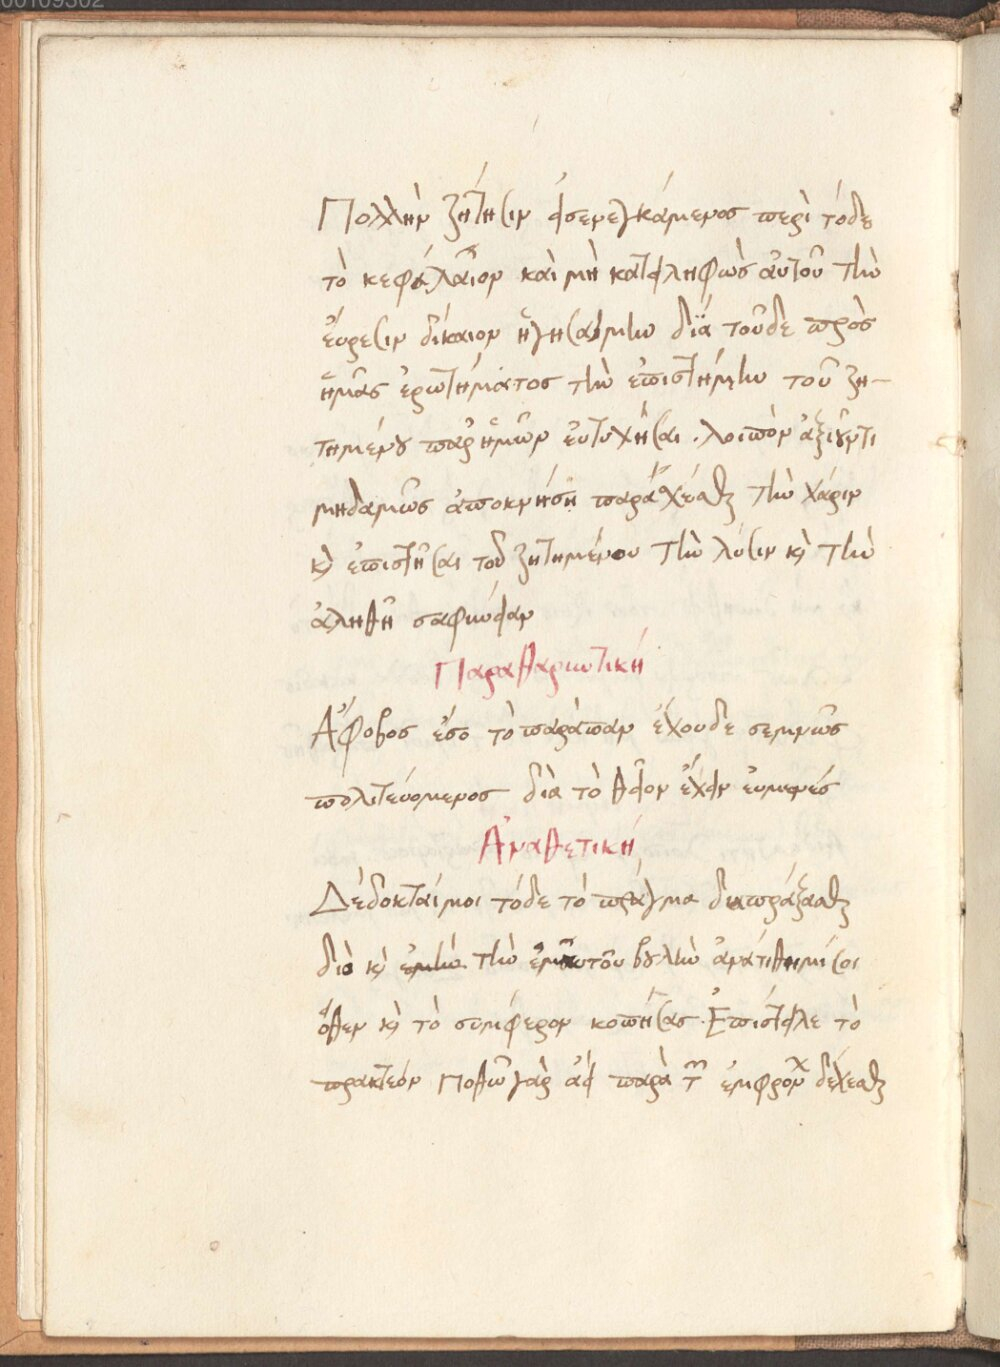 00109302
Πολλὴν ζήτησιν εἰσενεγκάμενος περὶ τόδε
τὸ κεφάλαιον καὶ μὴ κατειληφὼς αὐτοῦ τὴν
εὕρεσιν δίκαιον ἡγησάμην διὰ τοῦδε πρὸς
ἡμᾶς ἐρωτήματος τὴν ἐπιστήμην τοῦ ζη-
τημένου παρ' ἡμῶν εὐτυχῆσαι. λοιπὸν ἀξιοῦντι
μηδαμῶς ἀποκρήσῃ παρασχέσθαι τὴν χάριν
καὶ ἐπιστῆσαι τοῦ ζητημένου τὴν λύσιν καὶ τὴν
ἀληθῆ σαφήνειαν
Παραθαρρυντική
Ἄφοβος ἔσο τὸ παράπαν ἔχου δε σεμνῶς
πολιτευόμενος διὰ τὸ θεῖον ἔχειν εὐμενές
Ἀναθετική
Δέδοκται μοι τόδε τὸ πρᾶγμα διαπράξασθαι
διὸ καὶ ἐμὴν τὴν ἐμαυτοῦ βουλὴν ἀνατίθημί σοι
ὅθεν καὶ τὸ συμφέρον σκοπήσας. Ἐπίστειλε τὸ
πρακτεόν ποθῶ γὰρ ἀεὶ παρὰ τῶν ἐμφρόνων δέχεσθαι